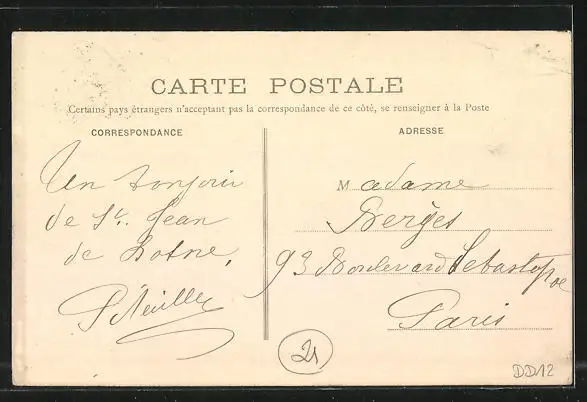 CARTE POSTALE
Certains pays étrangers n'acceptant pas la correspondance de ce côté, se renseigner à la Poste
CORRESPONDANCE
Un bonjour
de St. Jean
de Losne,
ADRESSE
Madame
Bergès
93 Boulevard Sébastopol
Paris
21
DD12